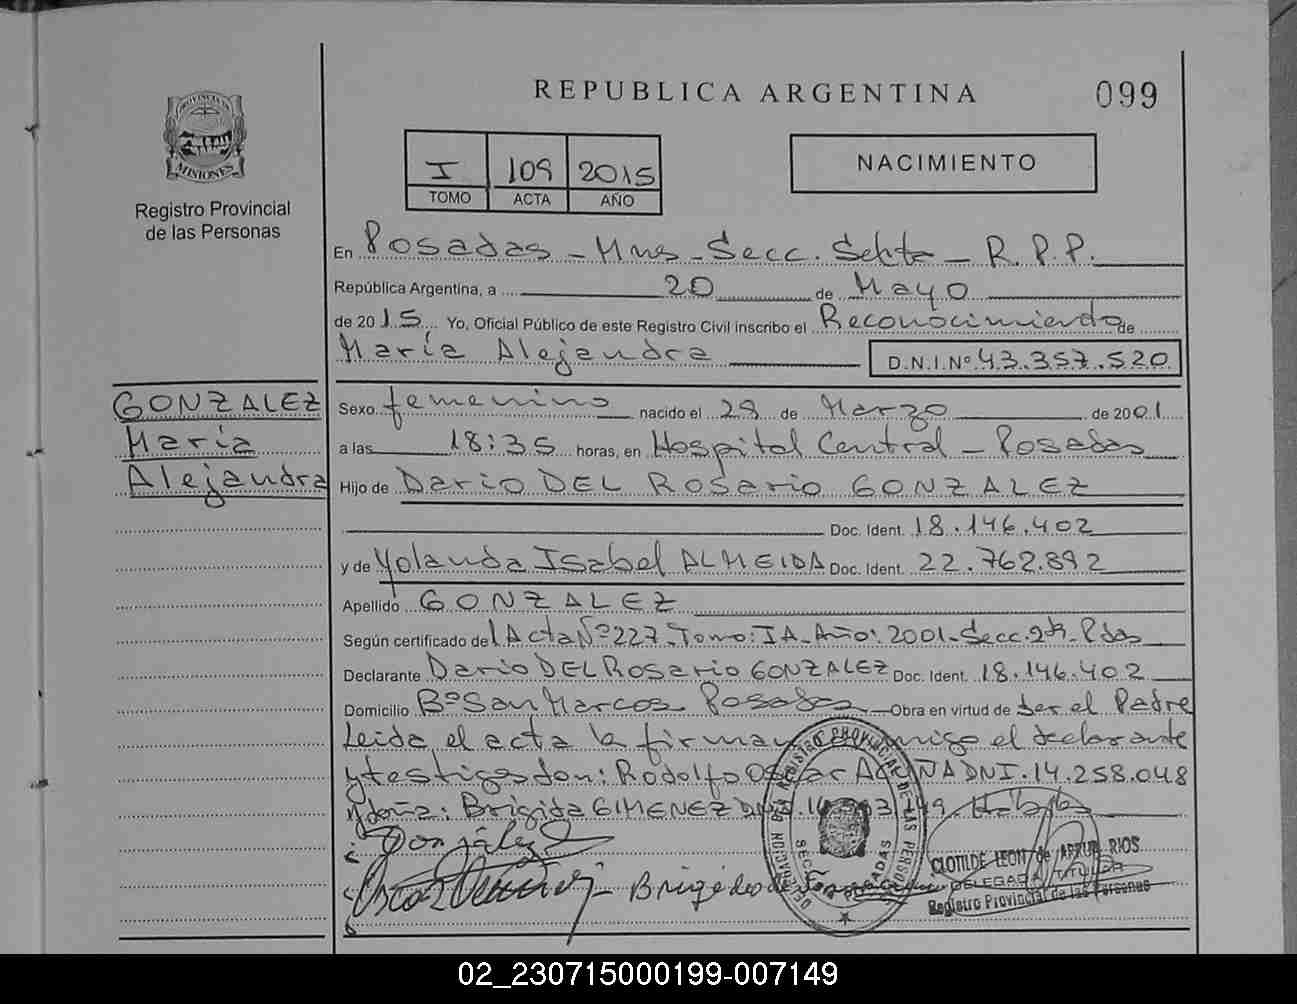 REPUBLICA ARGENTINA
099
PROVINCIA DE
MISIONES
Registro Provincial
de las Personas
I 109 2015
TOMO ACTA AÑO
NACIMIENTO
En Posadas - Mnes - Secc. Sexta - R.P.P.
República Argentina, a 20 de Mayo
de 2015 Yo, Oficial Público de este Registro Civil inscribo el Reconocimiento de
María Alejandra D.N.I.Nº 43.357.520
GONZALEZ
María
Alejandra
Sexo femenino nacido el 29 de Marzo de 2001
a las 18:35 horas, en Hospital Central - Posadas
Hijo de Dario DEL Rosario GONZALEZ
Doc. Ident. 18.146.402
y de Yolanda Isabel ALMEIDA Doc. Ident. 22.762.892
Apellido GONZALEZ
Según certificado del Acta Nº 227 Tomo: IA - Año: 2001 - Secc. 2da - Pdas
Declarante Dario DEL Rosario GONZALEZ Doc. Ident. 18.146.402
Domicilio Bº San Marcos Posadas Obra en virtud de ser el Padre
Leida el acta la firman conmigo el declarante
y testigos don: Rodolfo Oscar ACUÑA DNI. 14.258.048
y doña: Brigida GIMENEZ
González
Brigida
DELEGACION DEL REGISTRO PROVINCIAL DE LAS PERSONAS
POSADAS
CLOTILDE LEON de ARRUA RIOS
DELEGADA TITULAR
Registro Provincial de las Personas
02_230715000199-007149